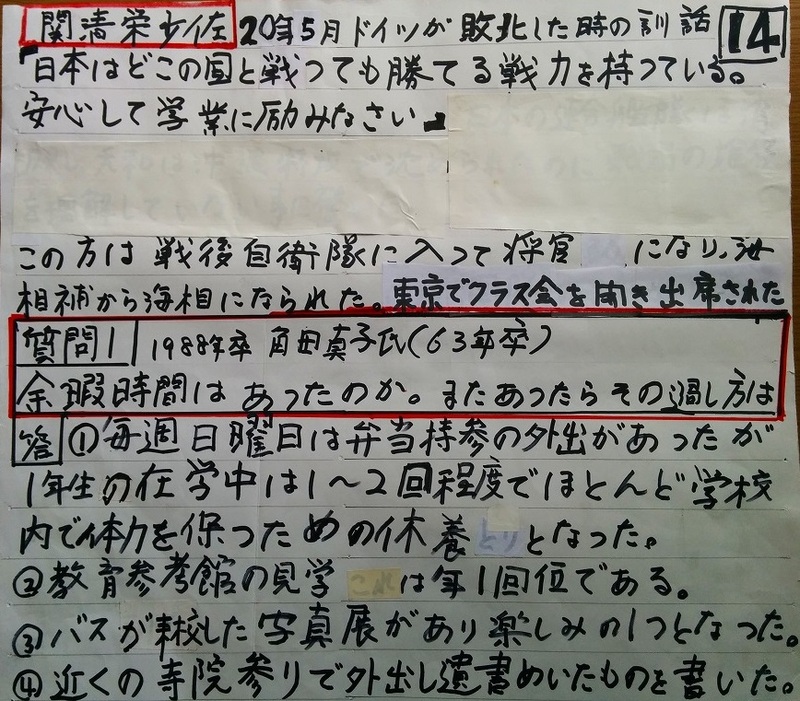 関清栄少佐 20年5月ドイツが敗北した時の訓話 14
「日本はどこの国と戦っても勝てる戦力を持っている。
安心して学業に励みなさい」
この方は戦後自衛隊に入って将官 になり、海
相補から海相になられた。東京でクラス会を開き出席された
質問1 1988年卒 角田真子氏(63年卒)
余暇時間はあったのか。またあったらその過し方は
答 ①毎週日曜日は弁当持参の外出があったが
1年生の在学中は1〜2回程度でほとんど学校
内で体力を保つための休養とりとなった。
②教育参考館の見学 これは年1回位である。
③バスが来校した写真展があり楽しみの1つとなった。
④近くの寺院参りで外出し遺書めいたものを書いた。